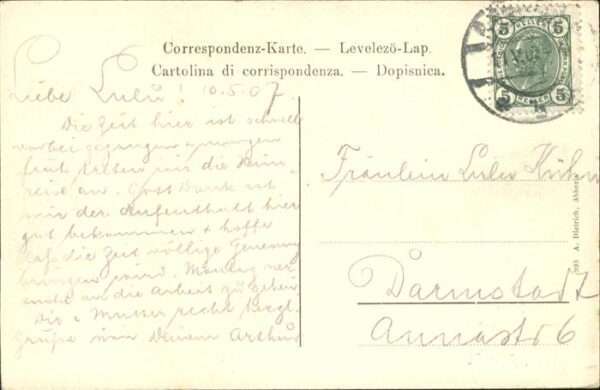 Correspondenz-Karte. — Levelező-Lap.
Cartolina di corrispondenza. — Dopisnica.
5 5
HELLER
HEMER
5 5
Liebe Lulu! 10.5.07.
Die Zeit hier ist schnell
vorbei gegangen & morgen
früh treten wir die Heim-
reise an. Gott Dank ist
mir der Aufenthalt hier
gut bekommen & hoffe
daß die Zeit völlige Genesung
bringen wird. Montag
an die Arbeit zu gehen
Dir & Mutter recht herzl.
Grüße von Deinem Arthur
Fräulein Lulu
Darmstadt
Annastr 6
A. Dietrich, Abbazia